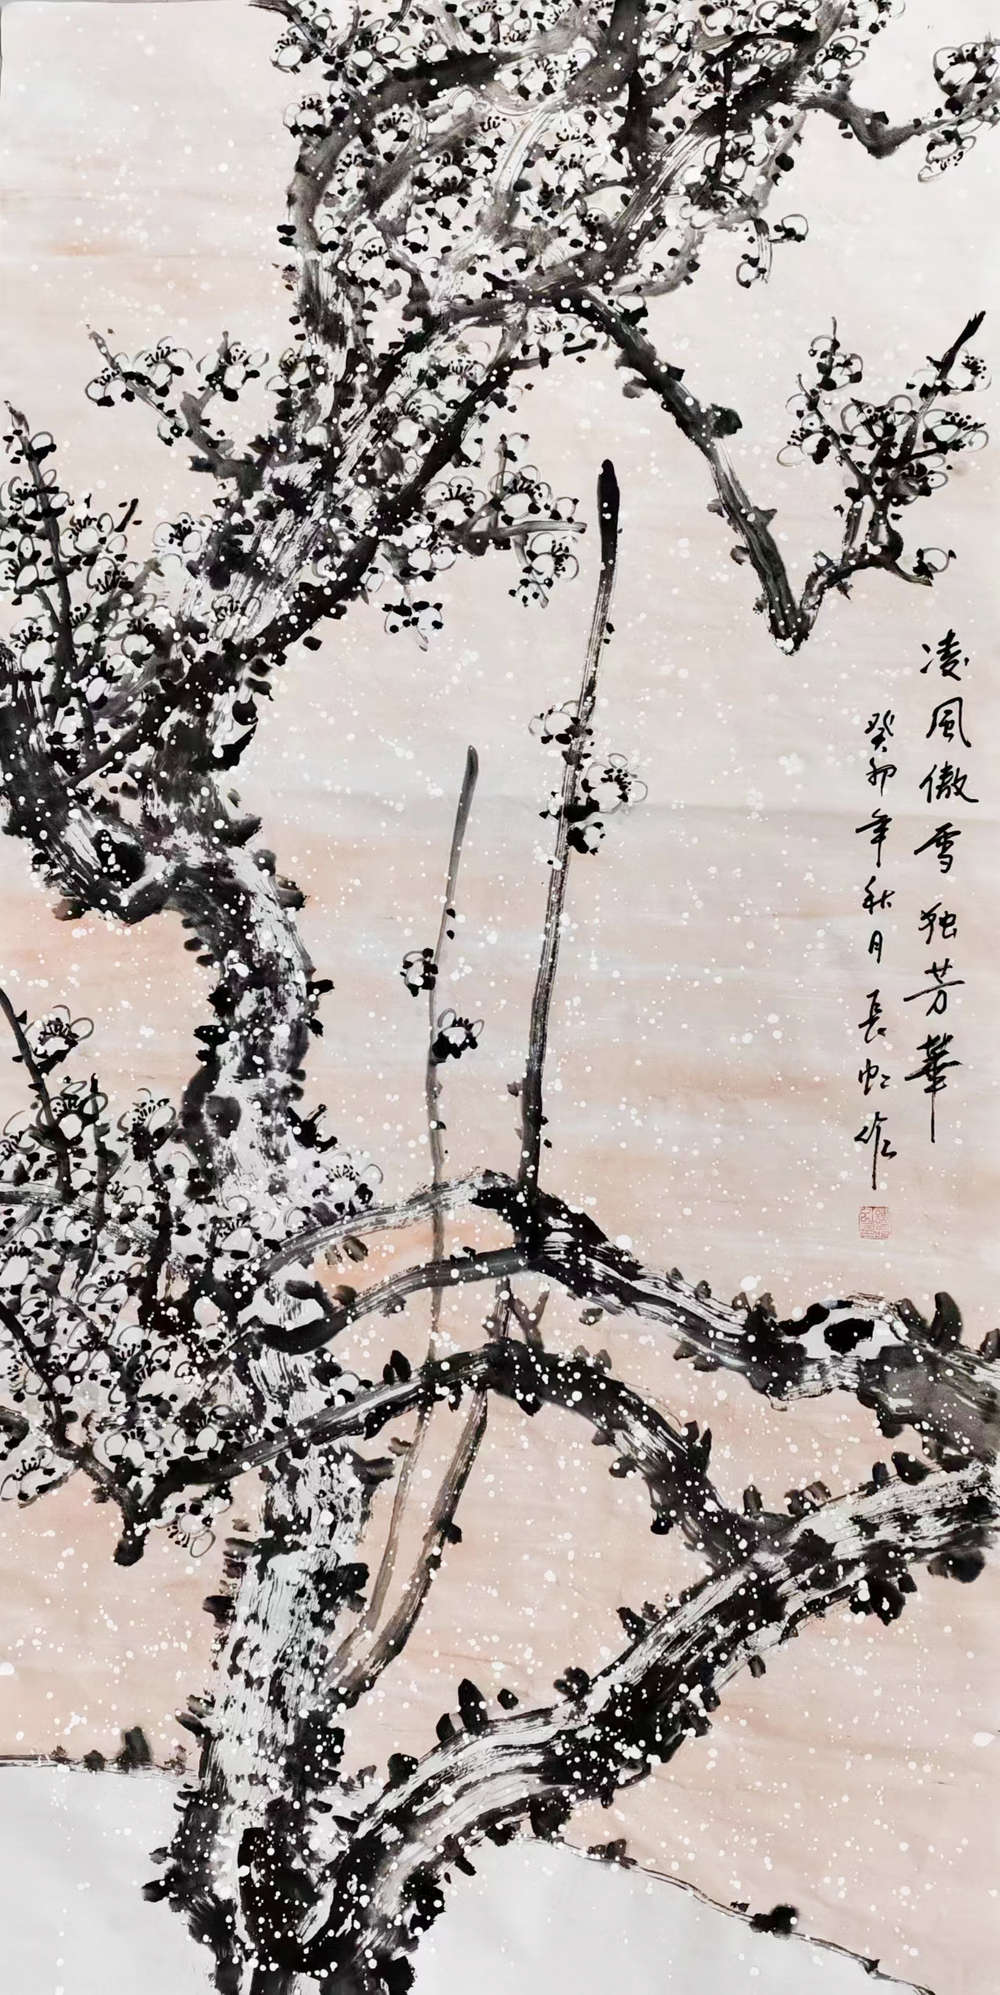 凌風傲雪独芳華
癸卯年秋月長虹作